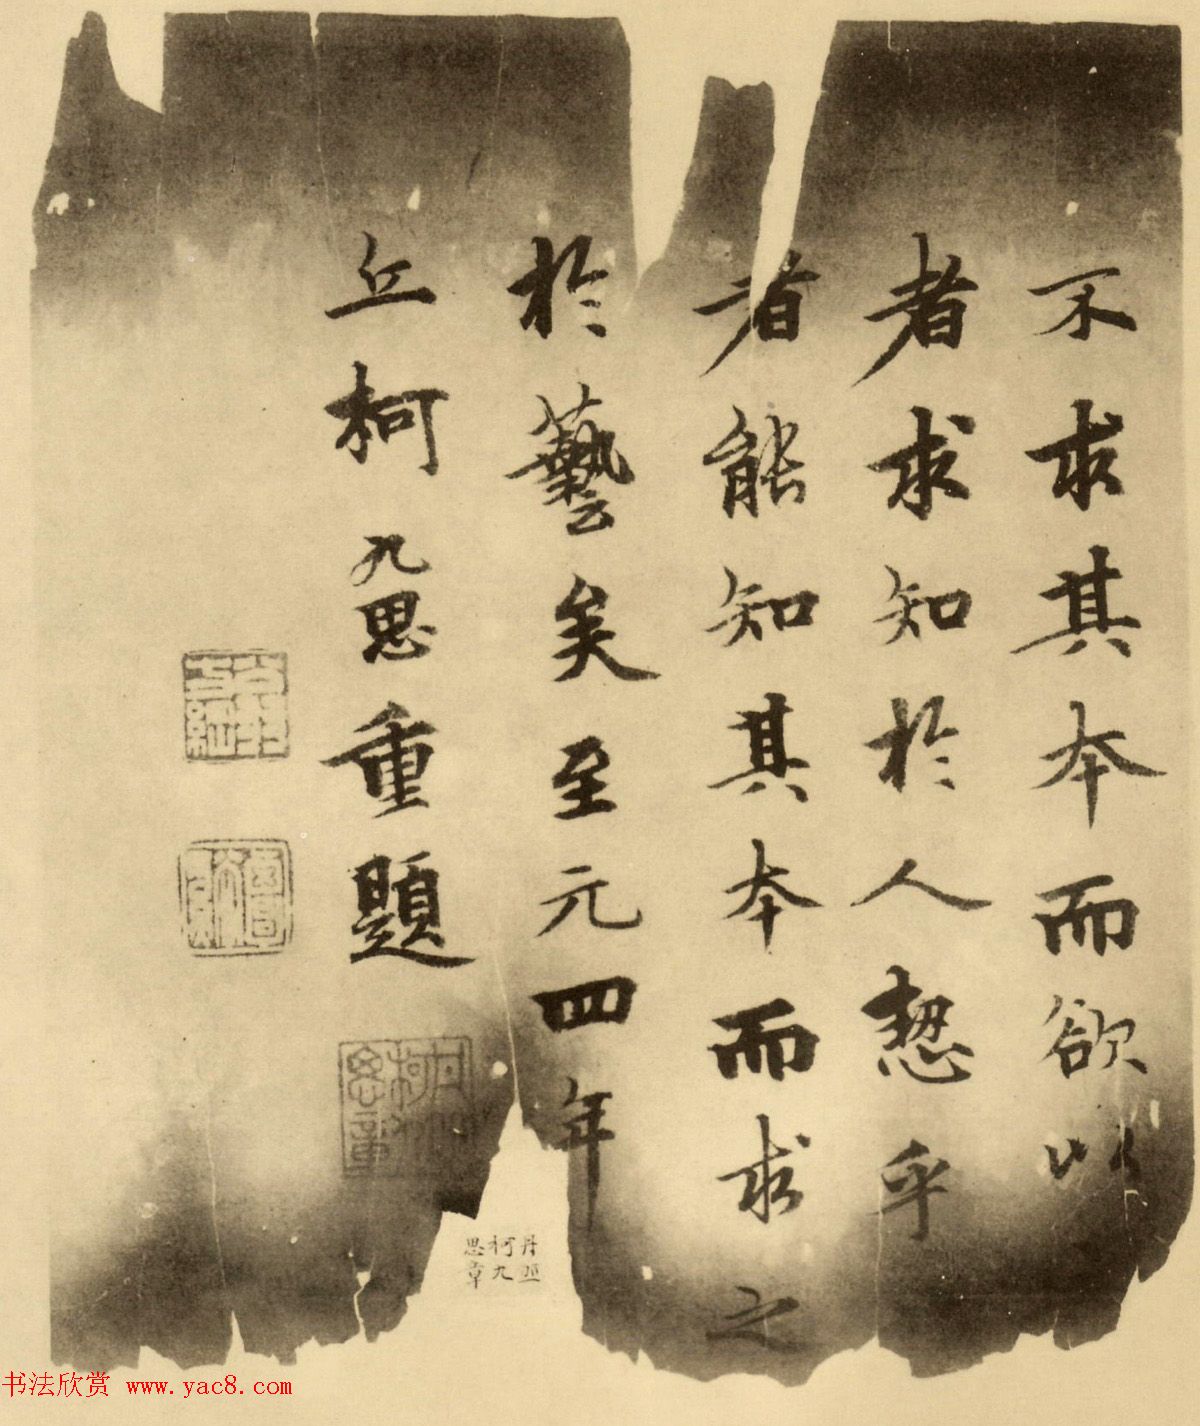 不求其本而欲以
者求知於人惑乎
者能知其本而求之
於藝矣至元四年
丘柯九思重題
丹丘
柯九
思章
书法欣赏 www.yac8.com